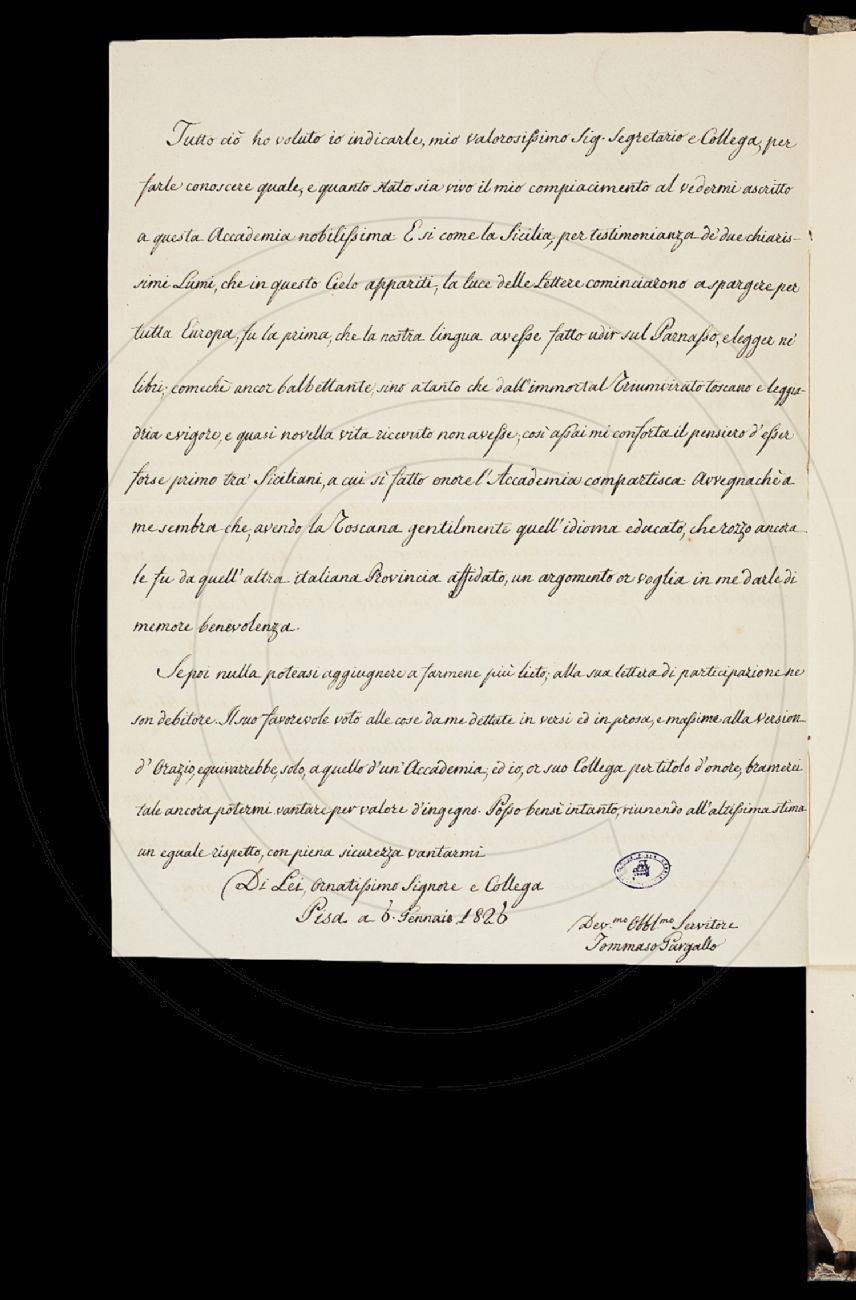 Tutto ciò ho voluto io indicarle, mio valorosissimo Sig. Segretario e Collega, per
farle conoscere quale, e quanto stato sia vivo il mio compiacimento al vedermi ascritto
a questa Accademia nobilissima. E sì come la Sicilia, per testimonianza de' due chiaris-
simi Lumi, che in questo Cielo appariti, la luce delle Lettere cominciarono a spargere per
tutta Europa, fu la prima, che la nostra lingua avesse fatto udir sul Parnasso, e legger ne'
libri; comechè ancor balbettante, sino a tanto che dall'immortal Triumvirato toscano e leggia-
dria e vigore, e quasi novella vita ricevuto non avesse; così assai mi conforta il pensiero d'esser
forse primo tra' Siciliani, a cui sì fatto onore l'Accademia compartisca: Avvegnachè a
me sembra che, avendo la Toscana gentilmente quell'idioma educato, che rozzo ancora
le fu da quell'altra italiana Provincia affidato, un argomento or voglia in me darle di
memore benevolenza.
Se poi nulla poteasi aggiugnere a farmene più lieto; alla sua lettera di participazione ne
son debitore. Il suo favorevole voto alle cose da me dettate in versi ed in prosa, e massime alla version
d'Orazio, equivarrebbe, solo, a quello d'un'Accademia; ed io, or suo Collega per titolo d'onore, bramerei
tale ancora potermi vantare per valore d'ingegno. Posso bensì intanto, riunendo all'altissima stima
un eguale rispetto, con piena sicurezza vantarmi
Di Lei, Ornatissimo Signore e Collega
Pisa a 6. Gennaio 1826
Dev.mo Obbl.mo Servitore
Tommaso Gargallo